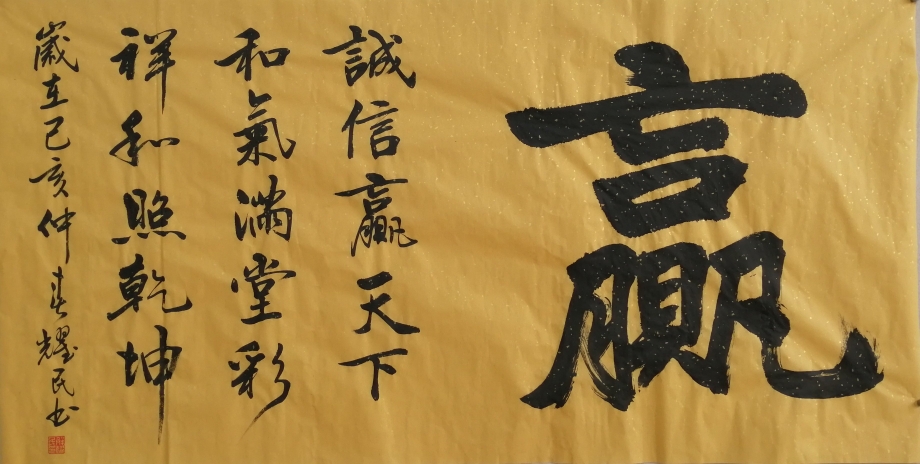 赢
誠信赢天下
和氣滿堂彩
祥和照乾坤
歲在己亥仲春耀民书